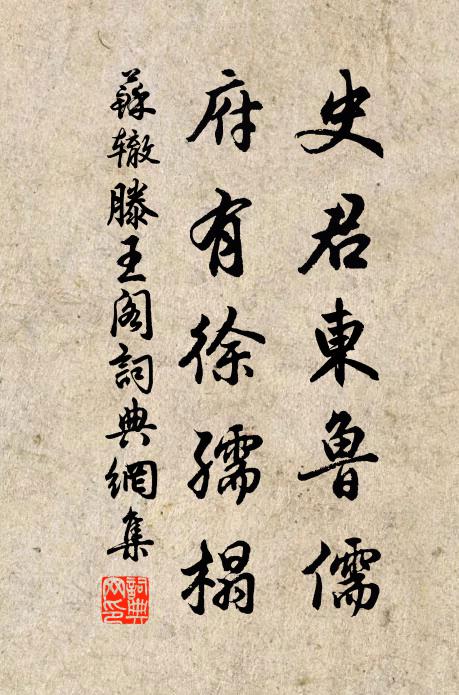 史君東魯儒
府有徐孺榻
蘇辙滕王阁詞典網集
詞典网印